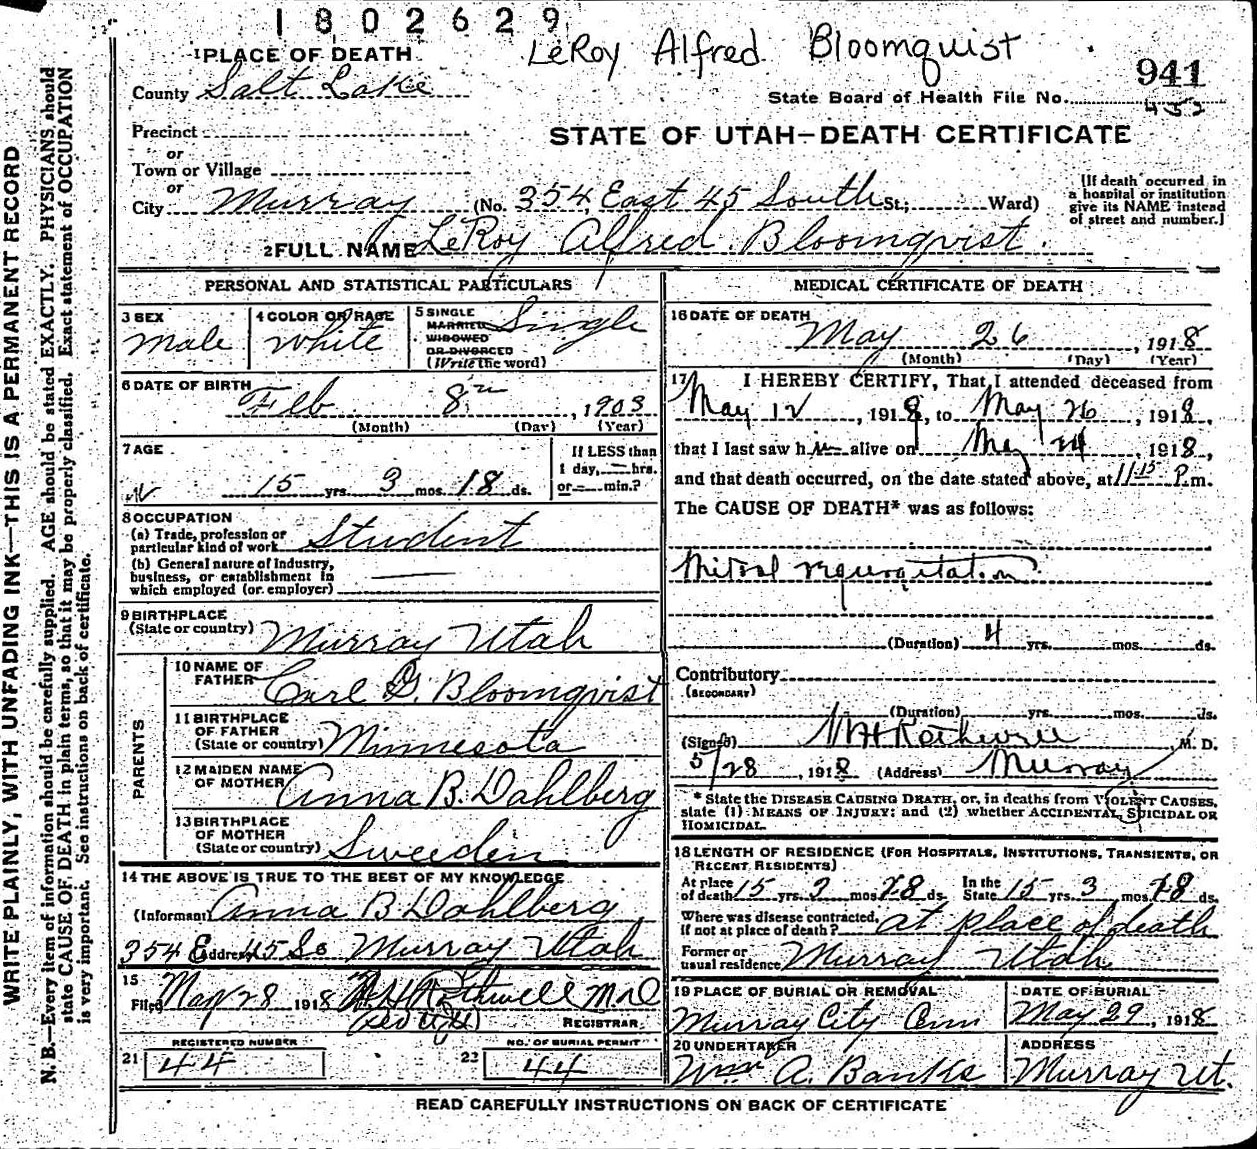 1802629
LeRoy Alfred Bloomquist
1 PLACE OF DEARTH
County Salt Lake
941
State Board of Health File No.
452
Precinct
or
Town or Village
or
City Murray (No. 354 East 45 South St.; Ward)
STATE OF UTAH—DEATH CERTIFICATE
[If death occurred in
a hospital or institution
give its NAME instead
of street and number.]
2 FULL NAME LeRoy Alfred Bloomqvist.
WRITE PLAINLY, WITH UNFADING INK—THIS IS A PERMANENT RECORD
N. B.—Every item of information should be carefully supplied. AGE should be stated EXACTLY. PHYSICIANS should
state CAUSE OF DEATH in plain terms, so that it may be properly classified. Exact statement of OCCUPATION
is very important. See instructions on back of certificate.
PERSONAL AND STATISTICAL PARTICULARS
3 SEX
Male
4 COLOR OR RACE
White
5 SINGLE
MARRIED
WIDOWED
OR DIVORCED
(Write the word)
Single
6 DATE OF BIRTH
Feb 8th, 1903
(Month) (Day) (Year)
7 AGE
15 yrs. 3 mos. 18 ds.
If LESS than
1 day, — hrs.
or — min.?
8 OCCUPATION
(a) Trade, profession or
particular kind of work Student
(b) General nature of Industry,
business, or establishment in
which employed (or employer)
9 BIRTHPLACE
(State or country) Murray Utah
PARENTS
10 NAME OF
FATHER Carl G. Bloomqvist
11 BIRTHPLACE
OF FATHER
(State or country) Minnesota
12 MAIDEN NAME
OF MOTHER Anna B. Dahlberg
13 BIRTHPLACE
OF MOTHER
(State or country) Sweeden
14 THE ABOVE IS TRUE TO THE BEST OF MY KNOWLEDGE
(Informant) Anna B Dahlberg
354 E (Address) 45 So Murray Utah
15
Filed May 28 1918 Rothwell M.D
REGISTRAR
REGISTERED NUMBER
21 44
NO. OF BURIAL PERMIT
22 44
MEDICAL CERTIFICATE OF DEATH
16 DATE OF DEATH
May 26, 1918
(Month) (Day) (Year)
17 I HEREBY CERTIFY, That I attended deceased from
May 12, 1918, to May 26, 1918,
that I last saw him alive on May 24 1918,
and that death occurred, on the date stated above, at 11 15 P.m.
The CAUSE OF DEATH* was as follows:
Mitral regurgitation
(Duration) 4 yrs. mos. ds.
Contributory
(SECONDARY)
(Duration) yrs. mos. ds.
(Signed) Rothwell M. D.
5/28, 1918 (Address) Murray
* State the DISEASE CAUSING DEATH, or, in deaths from VIOLENT CAUSES,
state (1) MEANS OF INJURY; and (2) whether ACCIDENTAL, SUICIDAL OR
HOMICIDAL.
18 LENGTH OF RESIDENCE (FOR HOSPITALS, INSTITUTIONS, TRANSIENTS, OR
RECENT RESIDENTS)
At place
of death 15 yrs. 3 mos. 18 ds. In the
State 15 yrs. 3 mos. 18 ds.
Where was disease contracted,
if not at place of death? at place of death
Former or
usual residence Murray Utah
19 PLACE OF BURIAL OR REMOVAL
Murray City Cem
DATE OF BURIAL
May 29, 1918
20 UNDERTAKER
Wm A. Banks
ADDRESS
Murray Ut.
READ CAREFULLY INSTRUCTIONS ON BACK OF CERTIFICATE